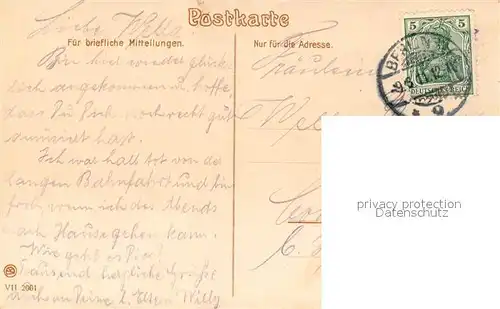 Postkarte
Für briefliche Mitteilungen.
Nur für die Adresse.
5 5
BERLIN
DEUTSCHES REICH
Liebe
Bin hoch wieder glück-
lich angekommen u. hoffe,
dass Du Dich noch recht gut
amüsiert hast.
Ich war halb tot von der
langen Bahnfahrt und bin
froh wenn ich des Abends
nach Hause gehen kann.
Wie geht es Dir?
Tausend herzliche Grüße
auch an Deine l. Eltern Willy
Fräulein
privacy protection
Datenschutz
VII 2061